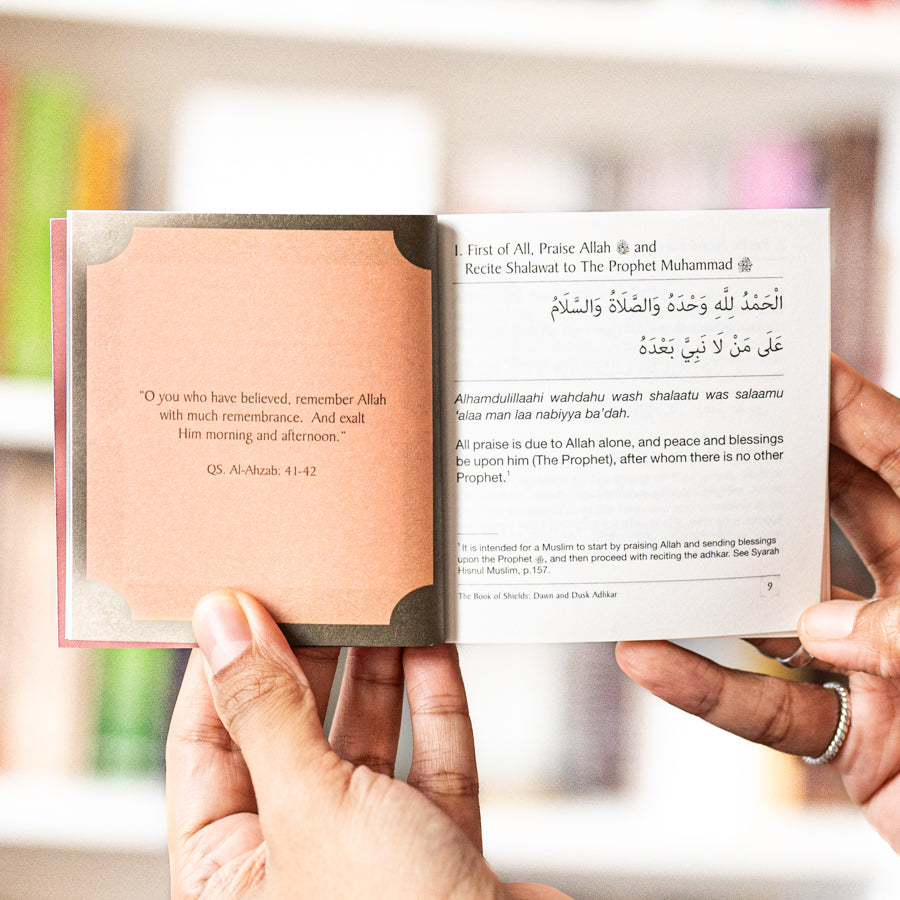 "O you who have believed, remember Allah
with much remembrance. And exalt
Him morning and afternoon."
QS. Al-Ahzab: 41-42
1. First of All, Praise Allah ﷻ and
Recite Shalawat to The Prophet Muhammad ﷺ
الْحَمْدُ لِلَّهِ وَحْدَهُ وَالصَّلَاةُ وَالسَّلَامُ
عَلَى مَنْ لَا نَبِيَّ بَعْدَهُ
Alhamdulillaahi wahdahu wash shalaatu was salaamu
'alaa man laa nabiyya ba'dah.
All praise is due to Allah alone, and peace and blessings
be upon him (The Prophet), after whom there is no other
Prophet.¹
¹ It is intended for a Muslim to start by praising Allah and sending blessings
upon the Prophet ﷺ, and then proceed with reciting the adhkar. See Syarah
Hisnul Muslim, p.157.
The Book of Shields: Dawn and Dusk Adhkar
9